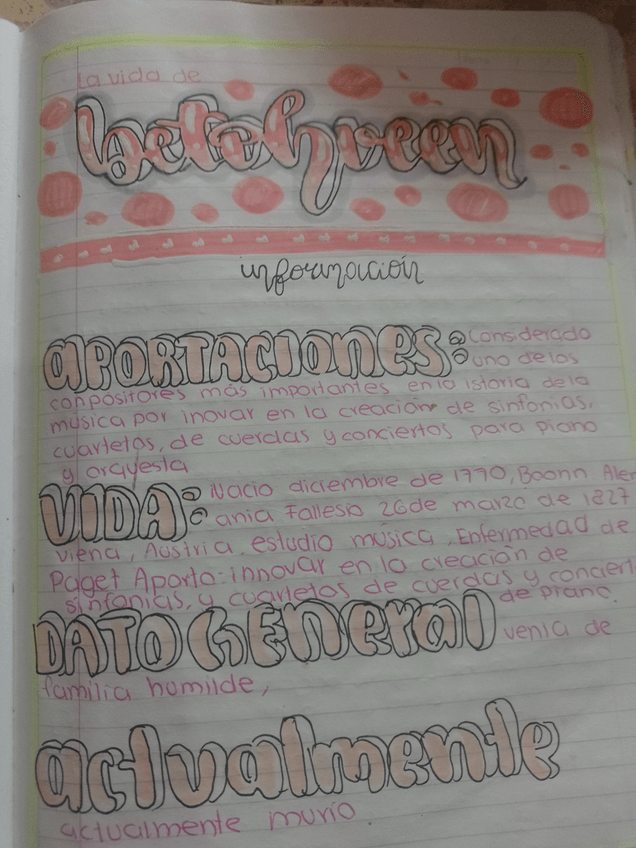 La vida de
betohveen
información
aportaciones: Considerado
uno de los
conpositores más importantes en la istoria de la
musica por inovar en la creación de sinfonias,
cuartetos, de cuerdas y conciertos para piano
y orquesta
VIDA: Nacio diciembre de 1770, Boonn Alem
ania Fallesio 26 de marzo de 1827
viena, Austria estudio música, Enfermedad de
Paget Aporto: innovar en la creación de
sinfonias, y cuartetos de cuerdas y conciert
de piano.
DATO GENeral venia de
familia humilde,
actualmente
actualmente murio.